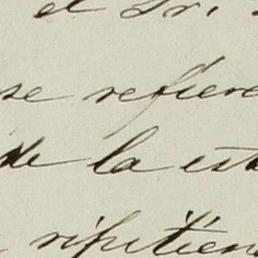 el Sr.
se refiere
de la est
ripitien